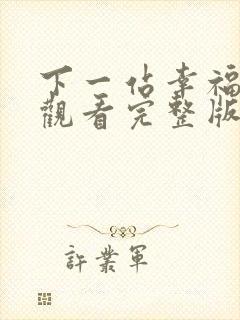 下一佔幸福
觀看完整版
許業軍